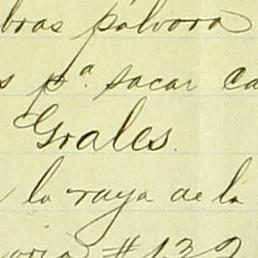 bras pólvora
s pª. sacar ca
Grales.
la raya de la
oria #132